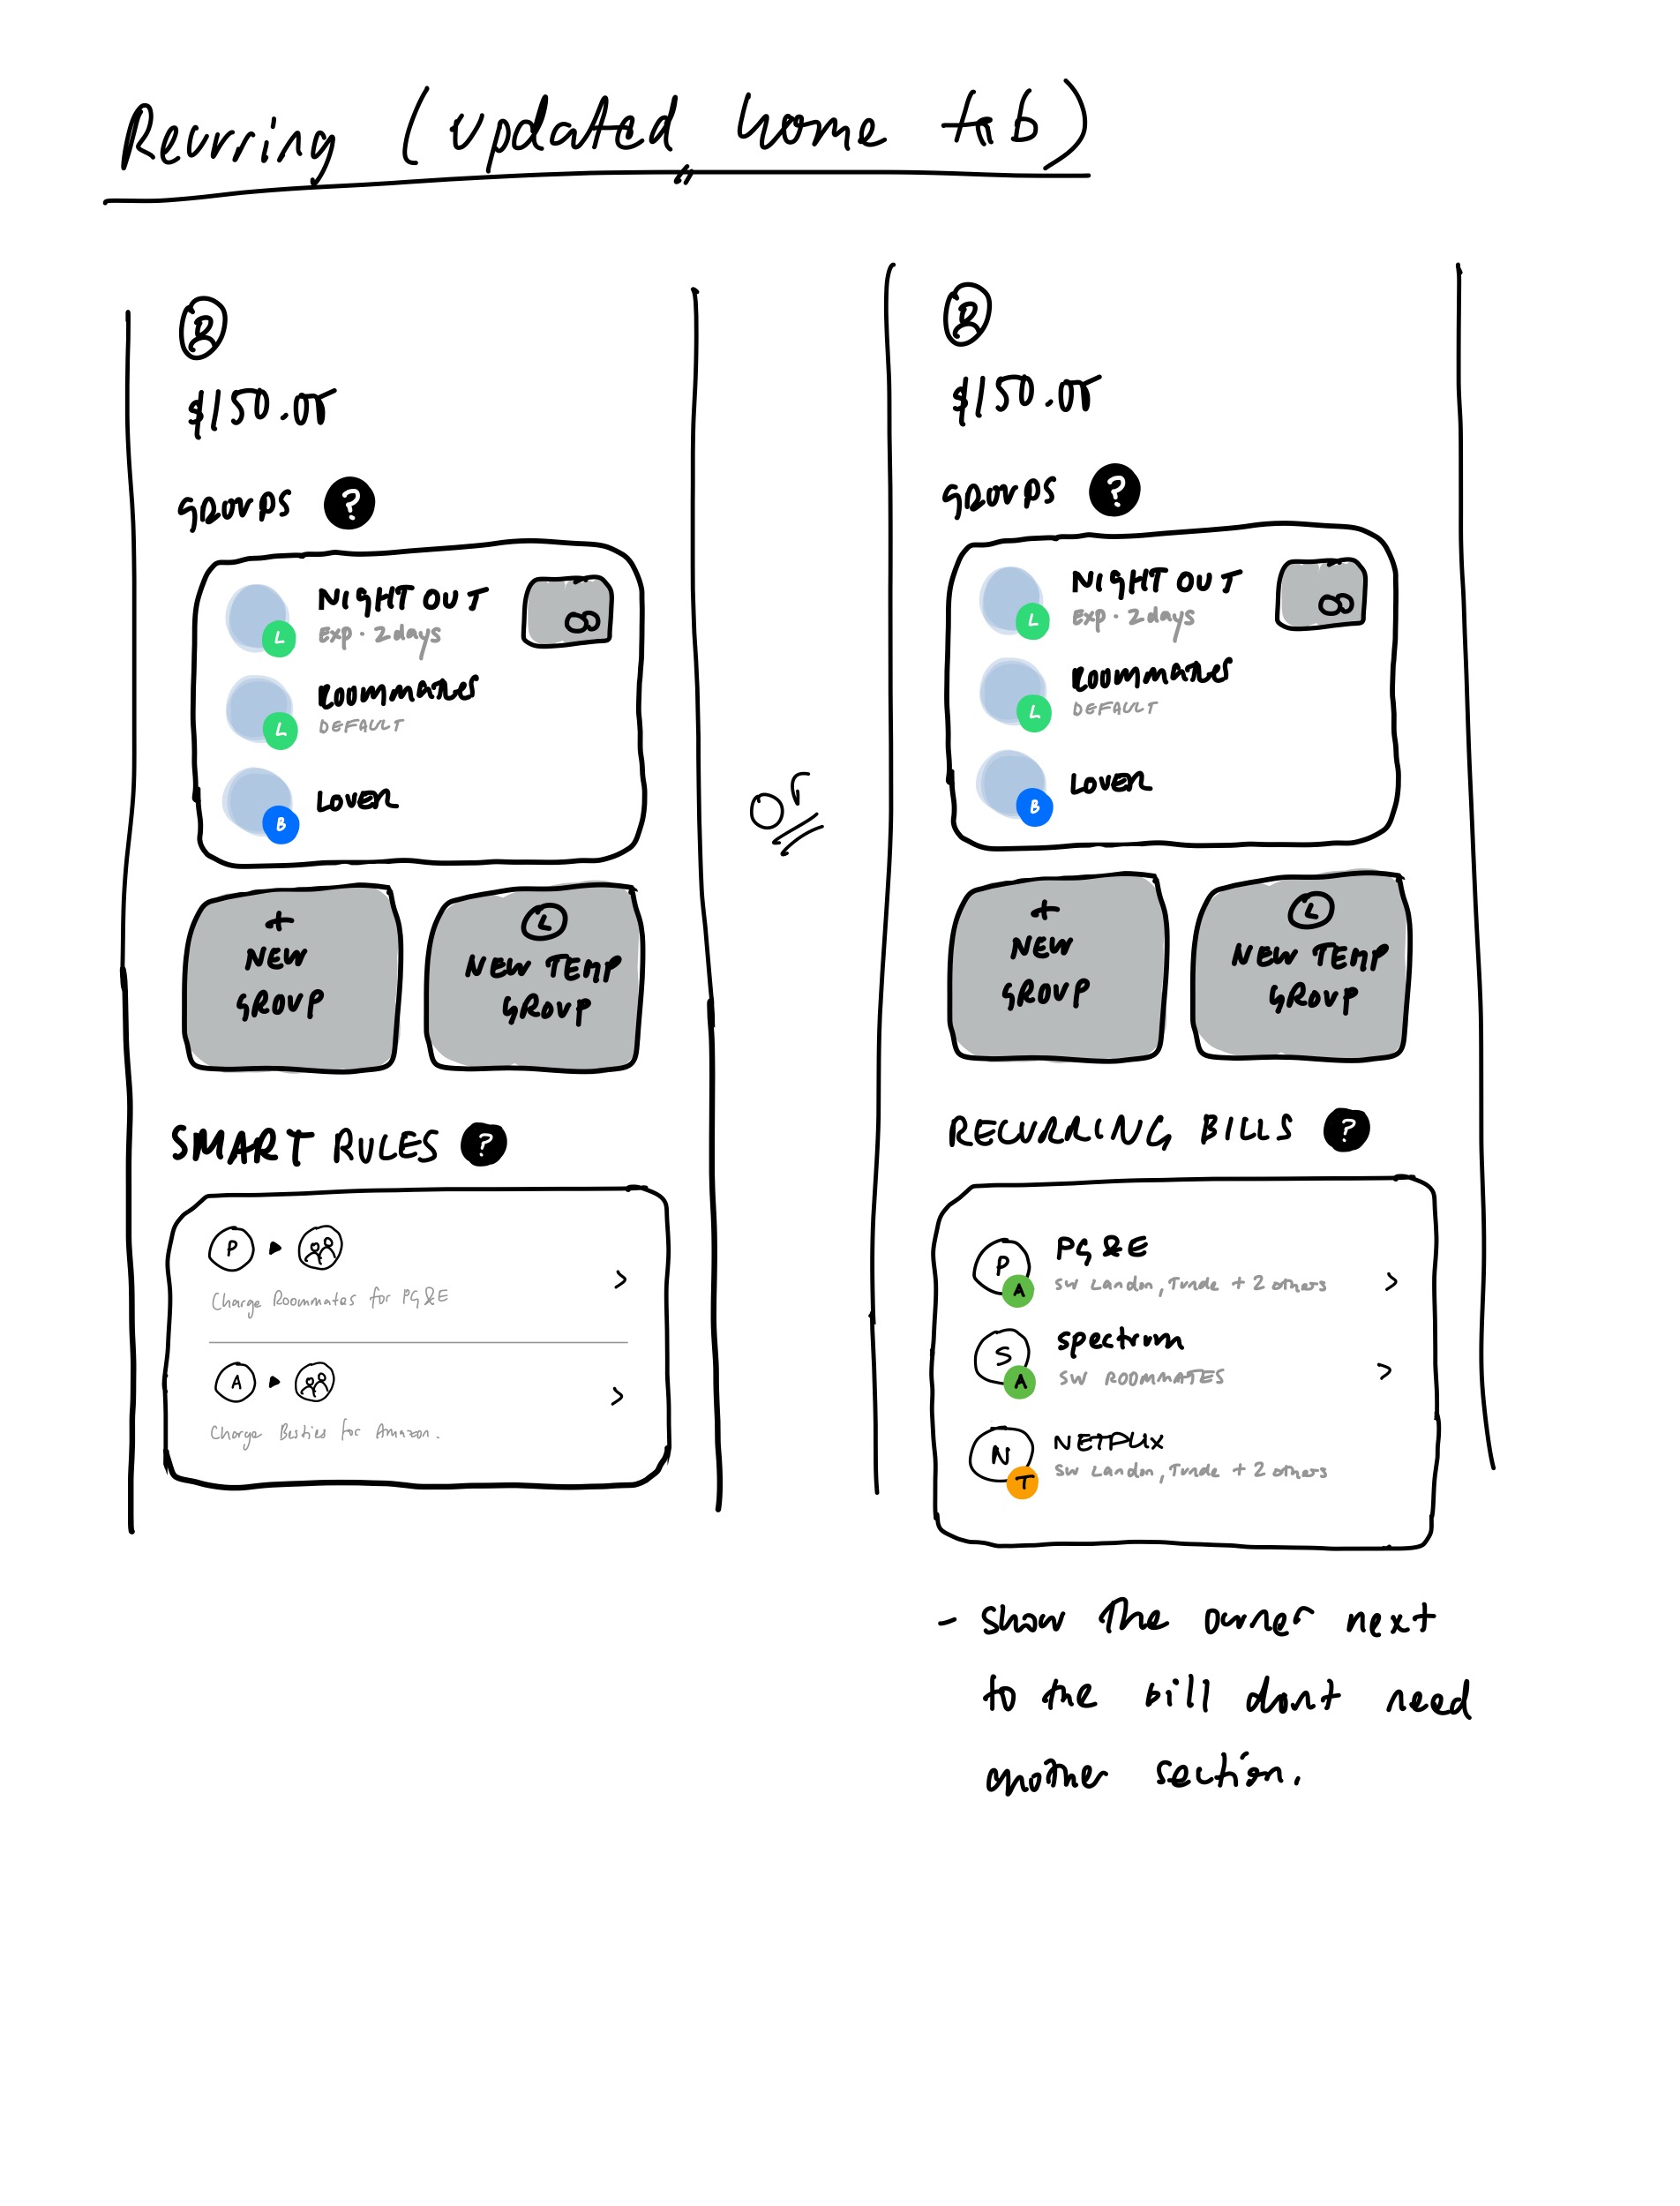 Recurring (updated home tab)
$150.00
GROUPS ?
NIGHT OUT
L
Exp · 2days
ROOMMATES
L
DEFAULT
LOVER
B
+
NEW
GROUP
L
NEW TEMP
GROUP
SMART RULES ?
P
>
Charge Roommates for PG&E
A
>
Charge Besties for Amazon.
or
$150.00
GROUPS ?
NIGHT OUT
L
Exp · 2days
ROOMMATES
L
DEFAULT
LOVER
B
+
NEW
GROUP
L
NEW TEMP
GROUP
RECURRING BILLS ?
P
PG&E
A
SW Landon, Tunde + 2 others >
S
spectrum
A
SW ROOMMATES >
N
NETFLIX
T
SW Landon, Tunde + 2 others
- show the owner next
to the bill dont need
another section.